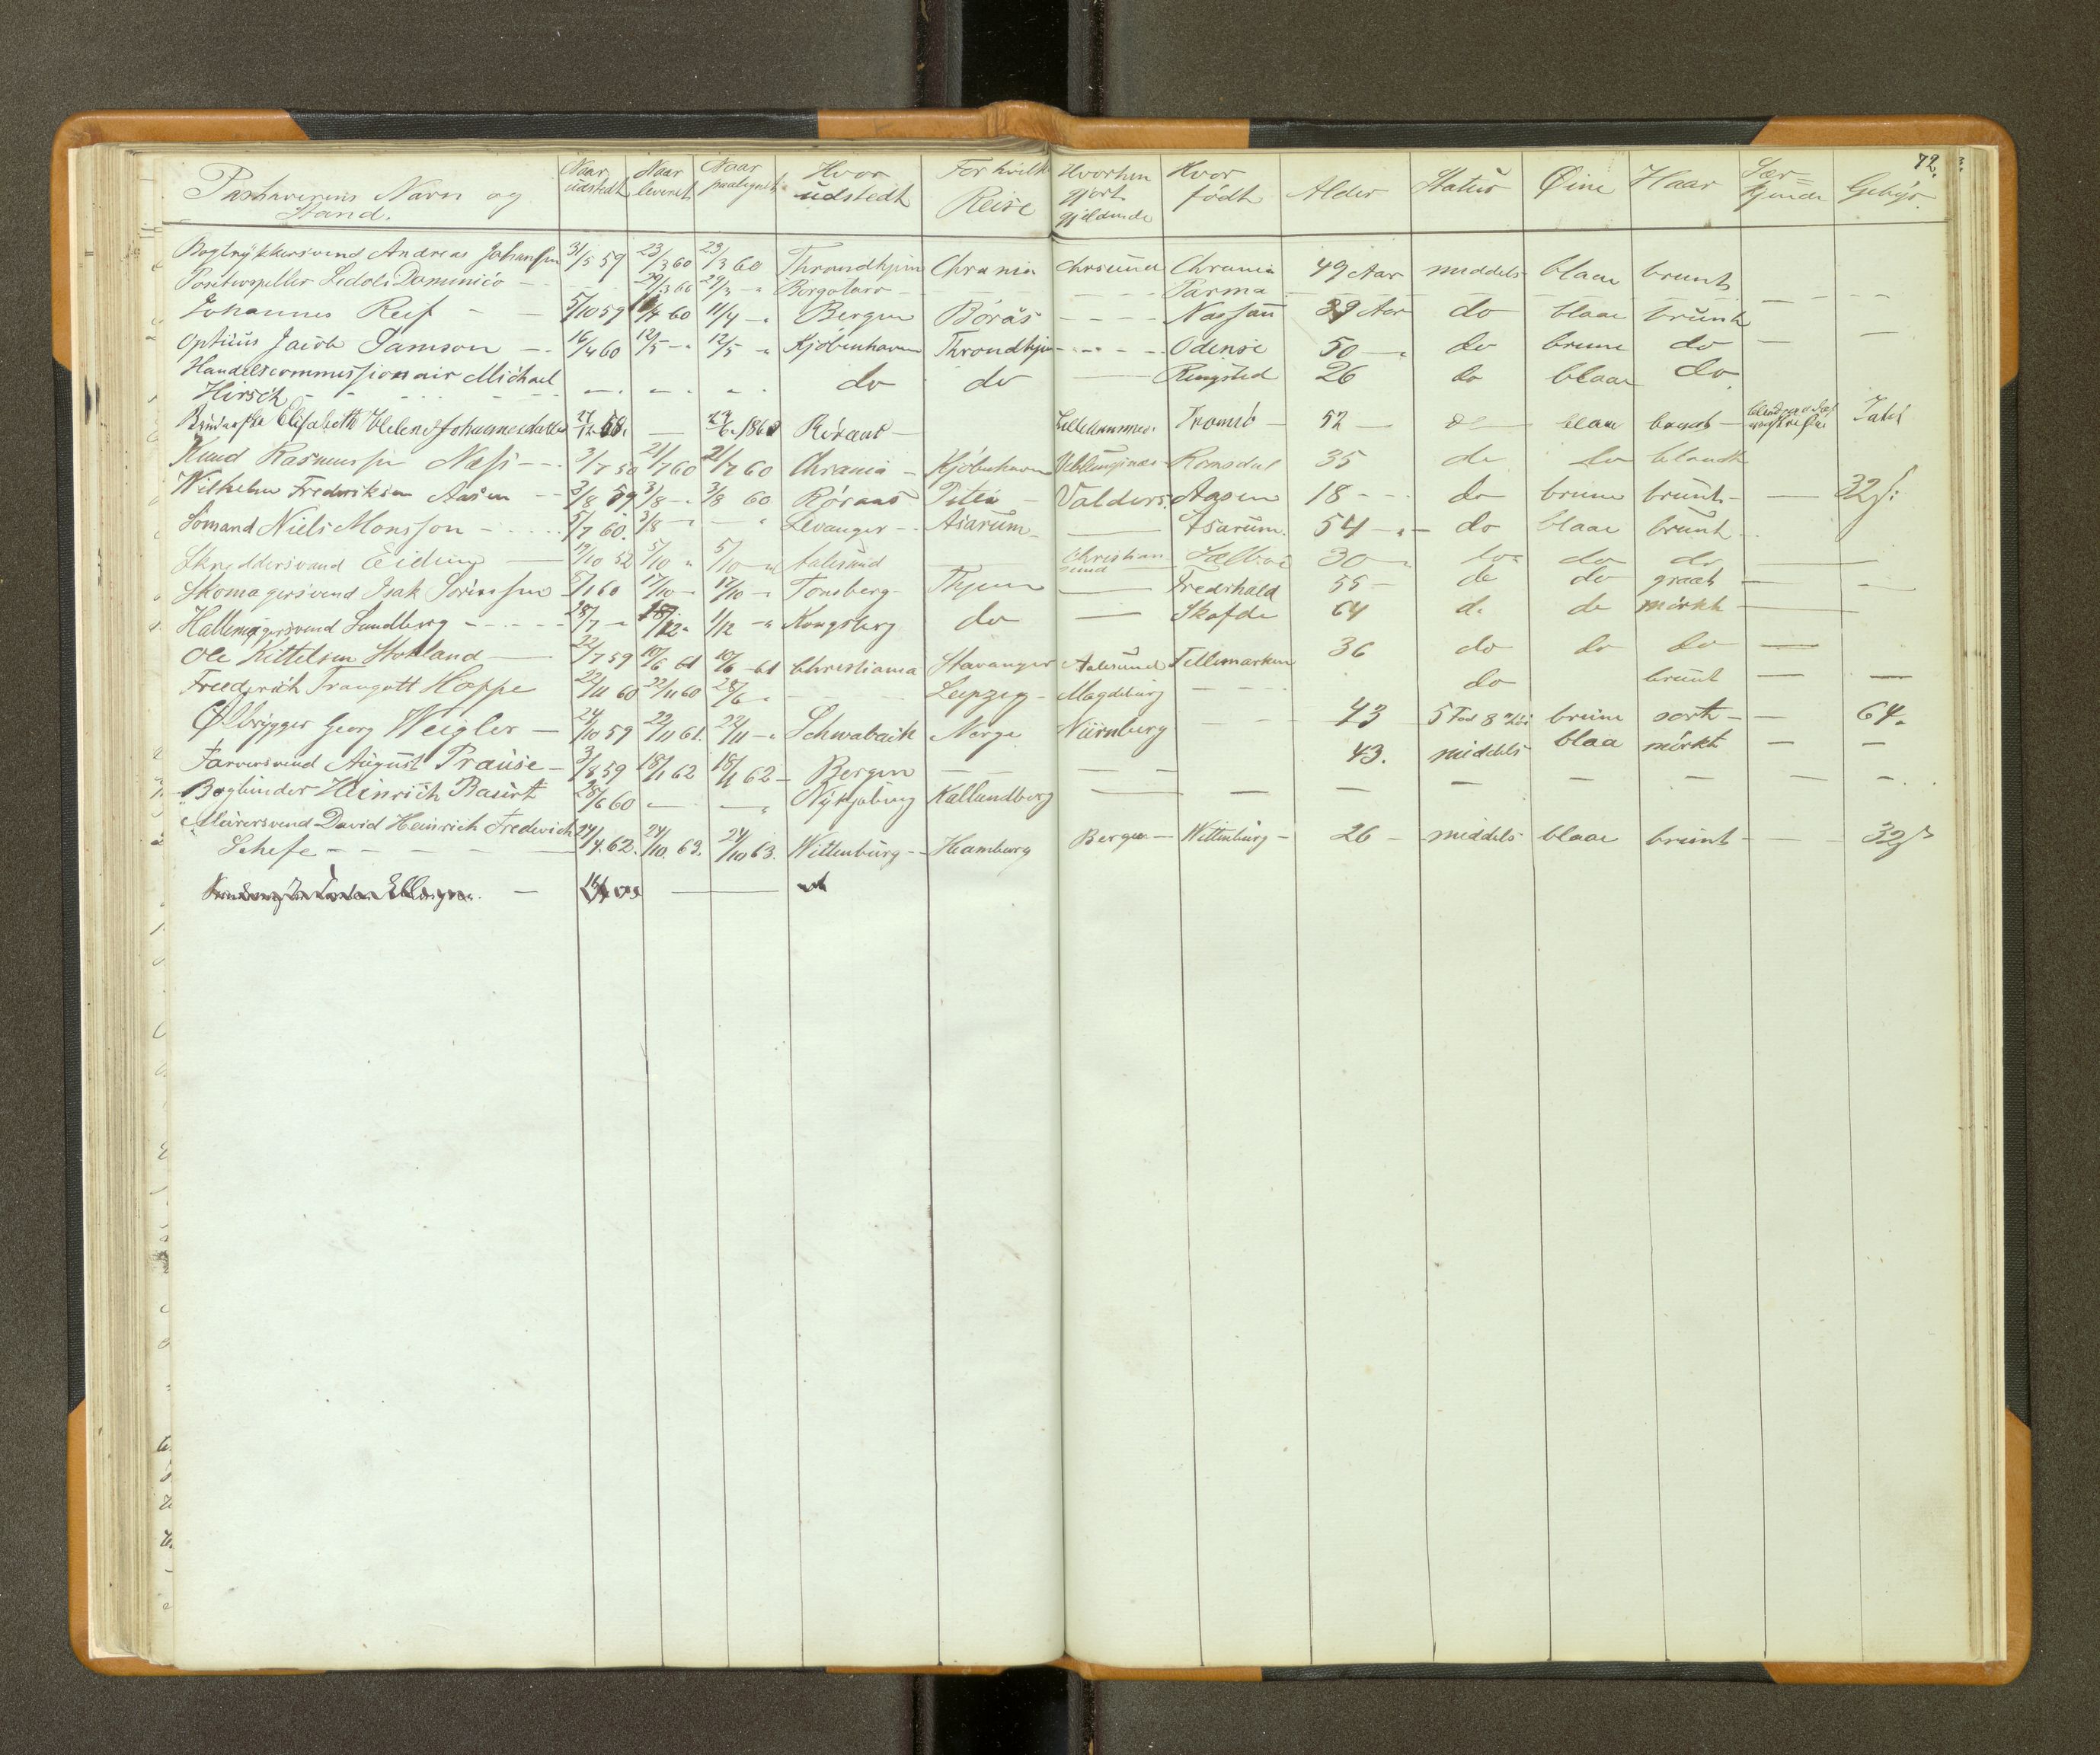 72.
Pashaverens Navn og Stand. Naar udstedt Naar leveret Naar paategnet Hvor udstedt For hvilk Reise Hvorhen gjort gjeldende Hvor födt Alder Statur Øine Haar Sær kjende Gebyr.
Bogtrykkersvend Andreas Johansen 31/5 59 23/3 60 23/3 60 Throndhjem Chrania Chrsund Chrania 49 Aar middels blaae brunt
Positivspiller Ledoli Dominico - 29/3 60 29/3 - " Borgotaro - - - Parma
Johannes Reif - - 5/10 59 11/4 60 11/4 - " Bergen Borås - - - Nassau 39 Aar do blaae brunt
Opticus Jacob Samson - 16/4 60 12/5 - " 12/5 - " Kjöbenhavn Throndhjem - - - Odense 50 - " do brune do -
Handelscommissionair Michael
Hirsch - - - - - - do do - Ringsted 26 do blaae do
Elisabeth Helene Johannesdatter 27/12 58. - 1860 Röraas - Lillehammer Tromsö - 52 - do blaae brunt -
Knud Rasmussen Næss - - 3/7 50 21/7 60 21/7 60 Chrania - Kjöbenhavn Veblungsnæs - Romsdal 35 do do blondt
Wilhelm Frederiksen Aasen - - 2/8 59 3/8 - " 3/8 60 Röraas Piteå - Valders. Aasen 18 - - do brune brunt - - 32 s:
Sömand Niels Monsson - 5/7 60. 3/8 - " " Levanger - Asarum - - Asarum. 54 - " - do blaae brunt.
Skreddersvend Eidem - 19/10 52 5/10 " 5/10 - " Aalesund - Christian sund Sælboe 30 - " do do do -
Skomagersvend Isak Sörensen 5/1 60 17/10 - " 17/10 - " Tonsberg Thjem - Fredrhald 55 - do do graat - -
Hattemagersvend Sundberg - - - 28/7 - " 1/12 " 1/12 - " Kongsberg do - Skofde 64 do do mörkt -
Ole Kittelsen Stokland - 22/7 59 10/6 61 10/6 - 61 Christiania Stavanger Aalesund Tellemarken 36 do do do -
Frederich Traugott Hoppe 22/11 60 22/11 60 28/6 " - - - Leipzig - Magdeburg - - - do brunt - -
Ølbrygger Georg Weigler - 24/10 59 22/11 61. 22/11 - " Schwabach Norge Nürnberg - - 43 5 Fod 8 brune sort - - 64.
Farversvend August Prause - 3/8 59 18/1 62 18/1 62 - Bergen - - - - 43. middels blaa mörkt - -
Bogbinder Heinrich Basürt 28/6 60 - - " Nykjöbing Kallundborg - - - - - - - -
Meurersvend David Heinrich Frederich
Schefe - - - - - 24/4. 62. 24/10. 63. 24/10 63. Wittenburg - - Hamburg Bergen - Wittenburg - 26 - middels blaae brunt - - - 32 s